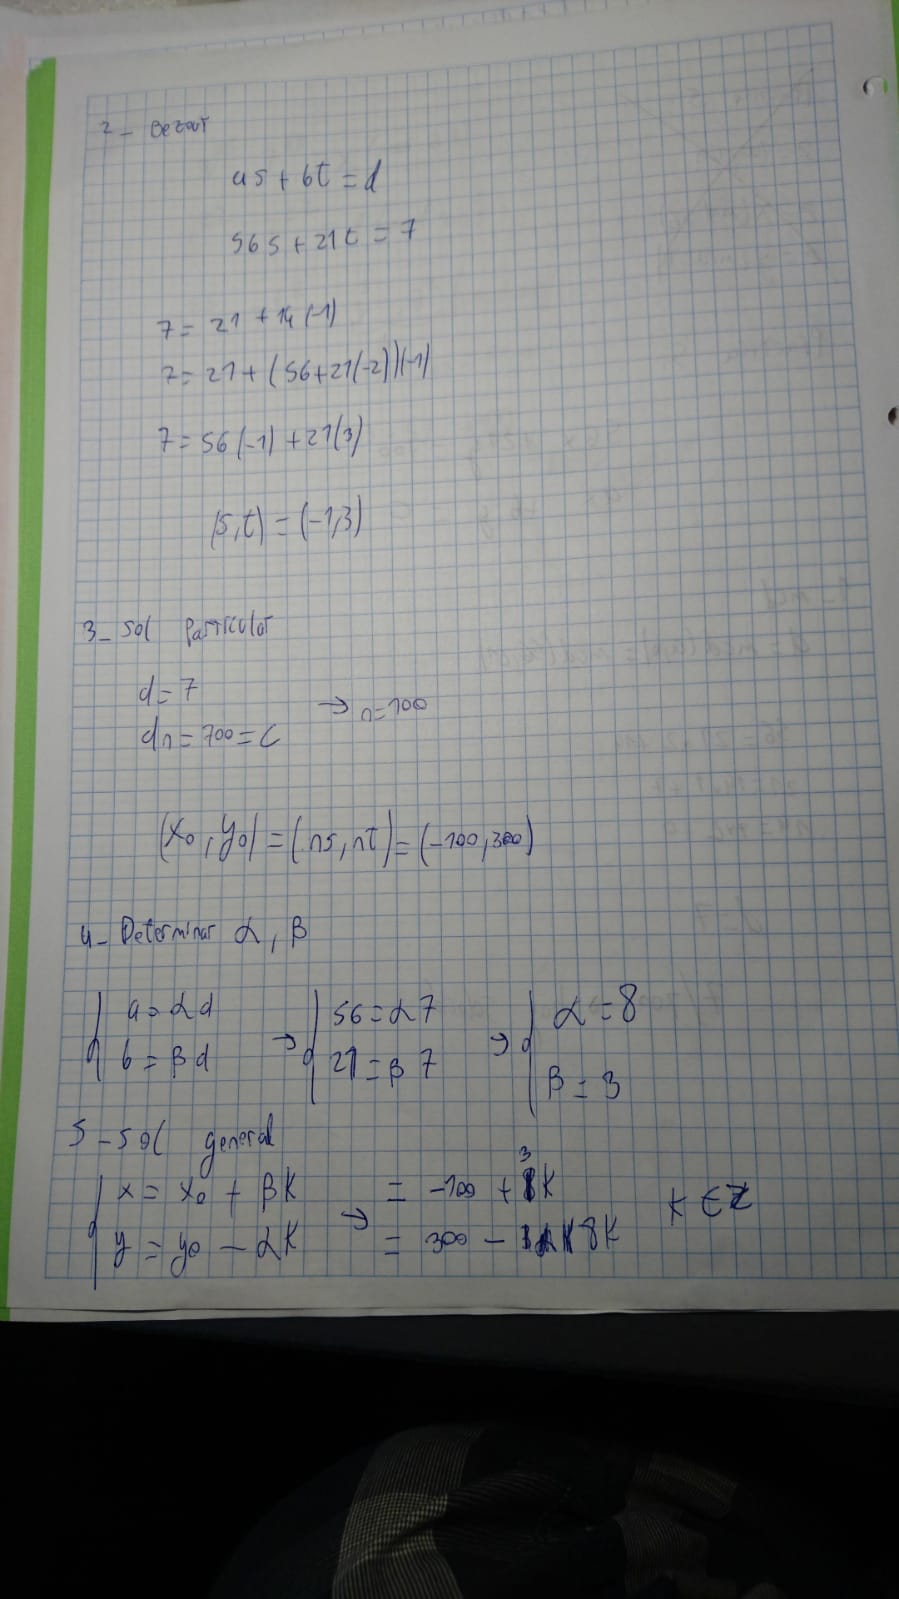 2- Bezout
as + bt = d
56s + 21t = 7
7 = 21 + 14(-1)
7 = 21 + (56+21(-2))(-1)
7 = 56(-1) + 21(3)
(s,t) = (-1,3)
3- sol particular
d = 7
dn = 700 = C → n=100
(x0, y0) = (ns, nt) = (-100, 300)
4- Determinar α, β
{ a = αd → { 56 = α7 → { α = 8
b = βd 21 = β7 β = 3
5- sol general
{ x = x0 + βK → = -100 + 3K K ∈ Z
y = y0 - αK = 300 - 8K